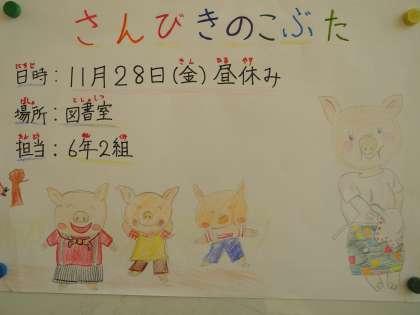 さんびきのこぶた
日時：11月28日(金)昼休み
場所：図書室
担当：6年2組